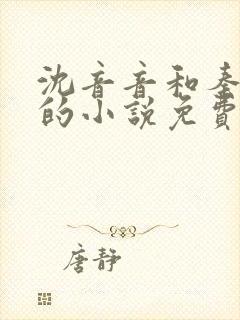 沈音音和秦
的小説免費
唐静